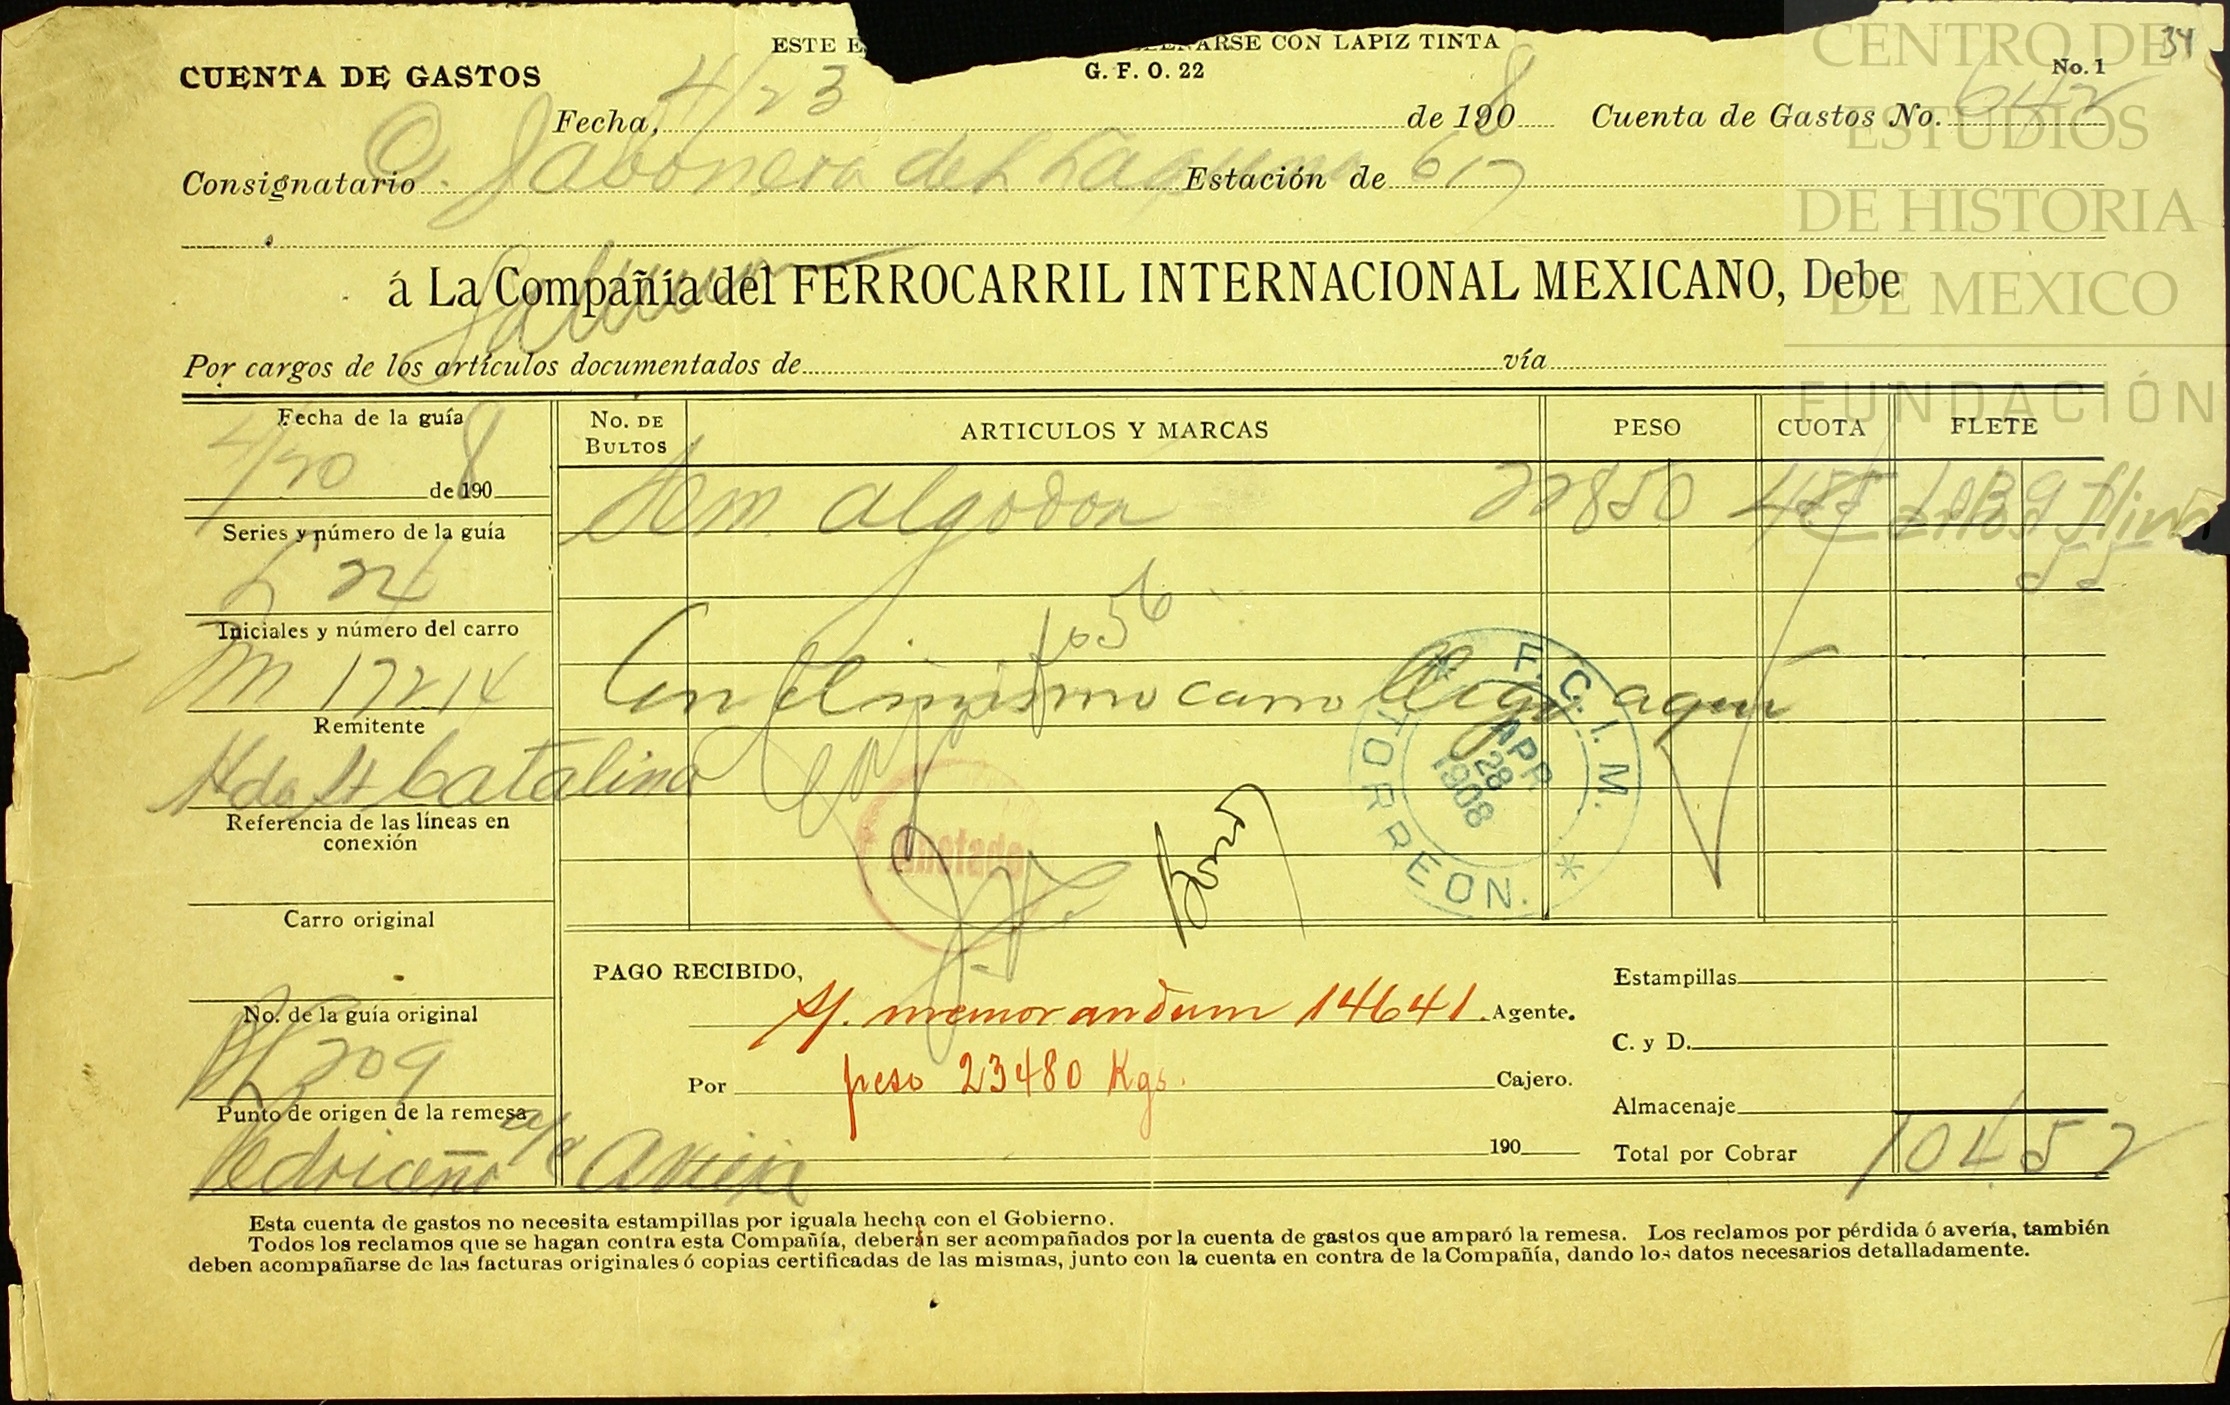 34
ESTE E LLENARSE CON LAPIZ TINTA
CUENTA DE GASTOS
G. F. O. 22
No. 1
Fecha, 4/23 de 1908 Cuenta de Gastos No. 642
Consignatario Jabonera de la Laguna Estación de 617
á La Compañía del FERROCARRIL INTERNACIONAL MEXICANO, Debe
Por cargos de los artículos documentados de vía
Fecha de la guía
4/20 de 1908
Series y número de la guía
Iniciales y número del carro
M 17214
Remitente
Hda St Catalina
Referencia de las líneas en
conexión
Carro original
No. de la guía original
209
Punto de origen de la remesa
Pedriceña
No. DE
BULTOS
ARTICULOS Y MARCAS
PESO
CUOTA
FLETE
Sem algodon 22850
55
56
En el mismo carro llegó aquí
F. C. I. M.
APR
28
1908
TORREON.
PAGO RECIBIDO,
s/. memorandum 14641. Agente.
Por peso 23480 Kgs. Cajero.
190
Estampillas
C. y D.
Almacenaje
Total por Cobrar 104 52
Esta cuenta de gastos no necesita estampillas por iguala hecha con el Gobierno.
Todos los reclamos que se hagan contra esta Compañía, deberán ser acompañados por la cuenta de gastos que amparó la remesa. Los reclamos por pérdida ó avería, también
deben acompañarse de las facturas originales ó copias certificadas de las mismas, junto con la cuenta en contra de la Compañía, dando los datos necesarios detalladamente.
CENTRO DE
ESTUDIOS
DE HISTORIA
DE MEXICO
FUNDACIÓN
Carlos Slim